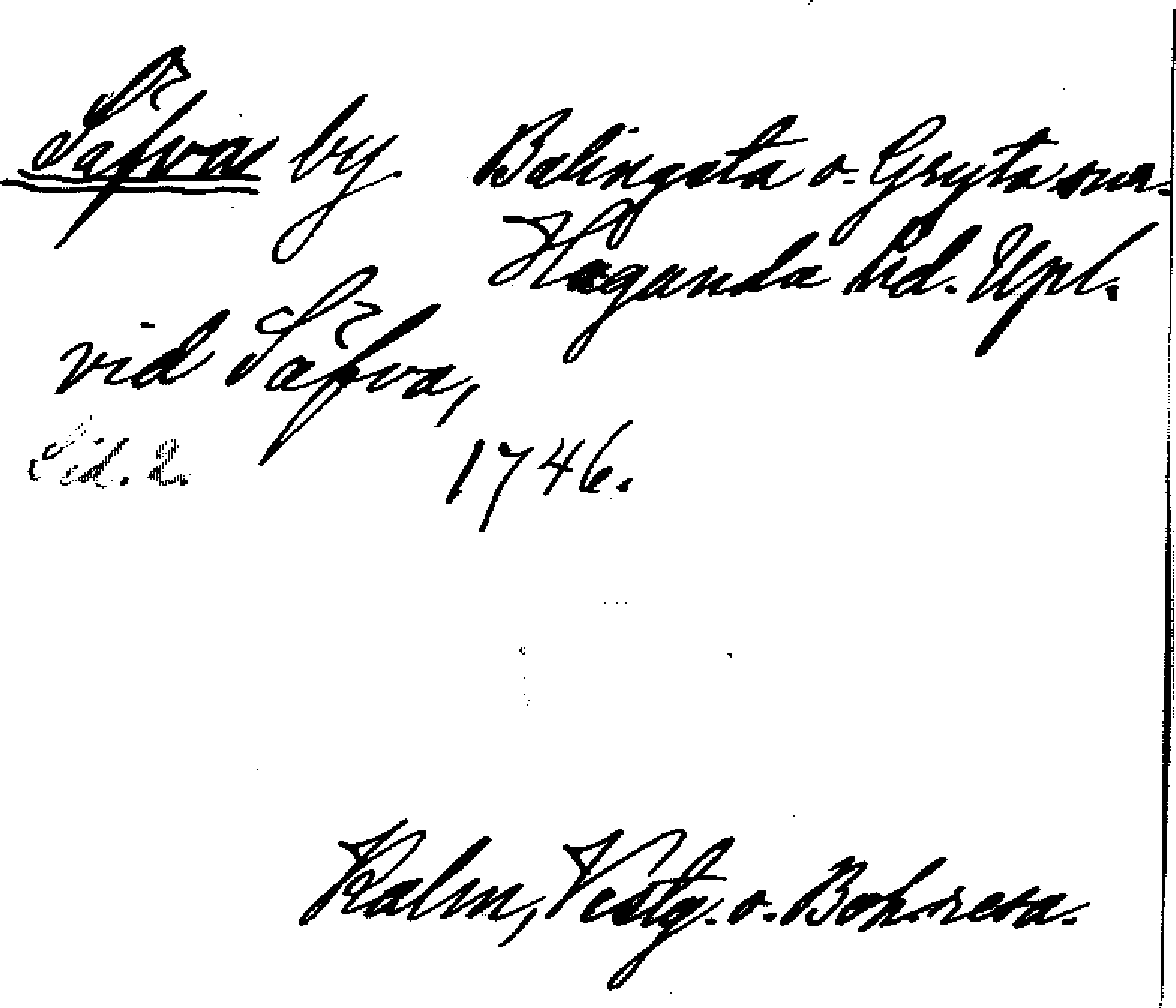 Säfva by. Balingsta o. Gryta snr.
Hagunda hd. Upl.
vid Säfva,
Sid. 2. 1746.
Kalm, Vestg. o. Boh. resa.